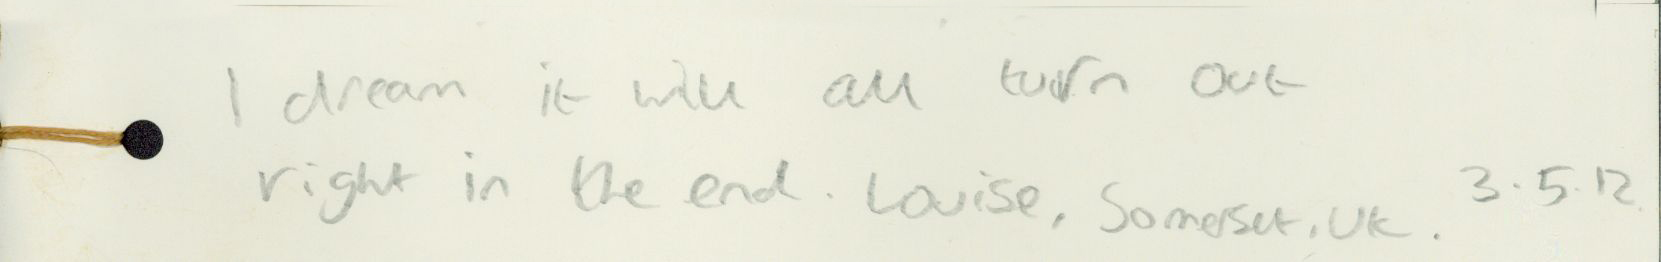 I dream it will all turn out
right in the end. Louise, Somerset, UK. 3.5.12.